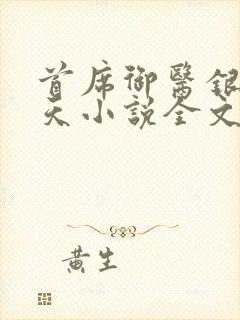 首席御醫銀
天小說全文
黃生